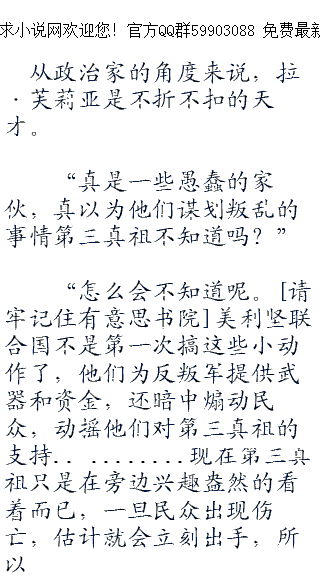 求小说网欢迎您！官方QQ群59903088 免费最新
从政治家的角度来说，拉
·芙莉亚是不折不扣的天
才。
“真是一些愚蠢的家
伙，真以为他们谋划叛乱的
事情第三真祖不知道吗？”
“怎么会不知道呢。[请
牢记住有意思书院]美利坚联
合国不是第一次搞这些小动
作了，他们为反叛军提供武
器和资金，还暗中煽动民
众，动摇他们对第三真祖的
支持.. ........现在第三真
祖只是在旁边兴趣盎然的看
着而已，一旦民众出现伤
亡，估计就会立刻出手，所
以